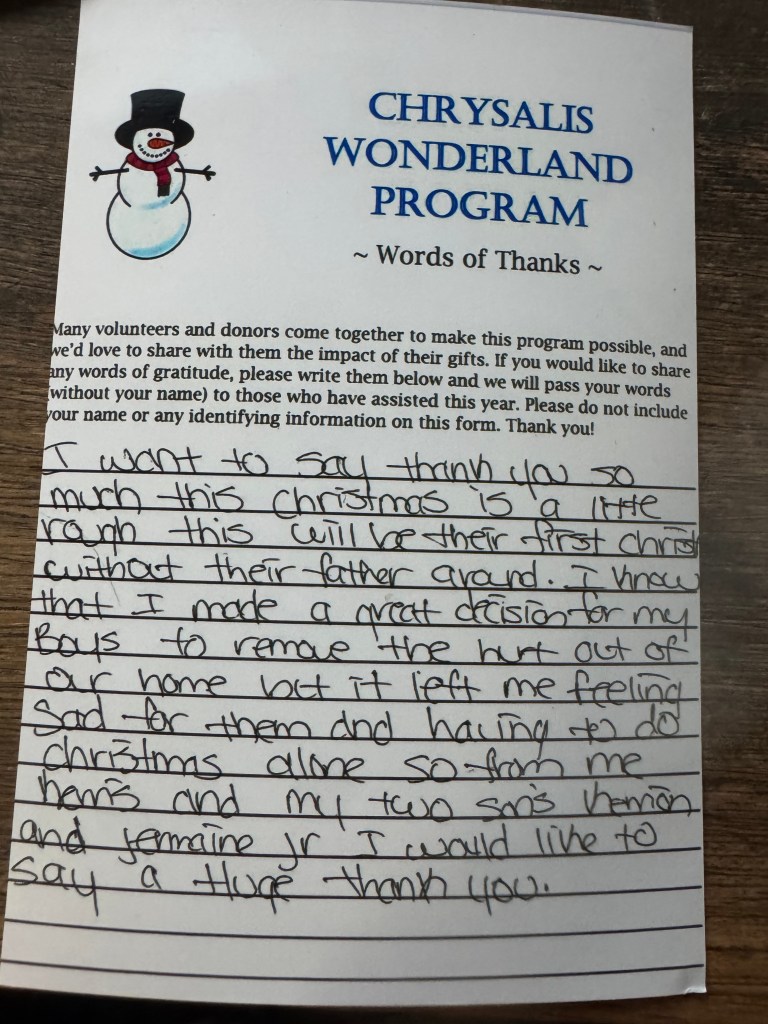 CHRYSALIS
WONDERLAND
PROGRAM
~ Words of Thanks ~
Many volunteers and donors come together to make this program possible, and
we'd love to share with them the impact of their gifts. If you would like to share
any words of gratitude, please write them below and we will pass your words
(without your name) to those who have assisted this year. Please do not include
your name or any identifying information on this form. Thank you!
I want to say thank you so
much this christmas is a little
rough this will be their first christ
without their father around. I know
that I made a great decision for my
Boys to remove the hurt out of
our home but it left me feeling
Sad for them and having to do
christmas alone so from me
and my two son's
and Jermaine jr I would like to
say a Huge thank you.